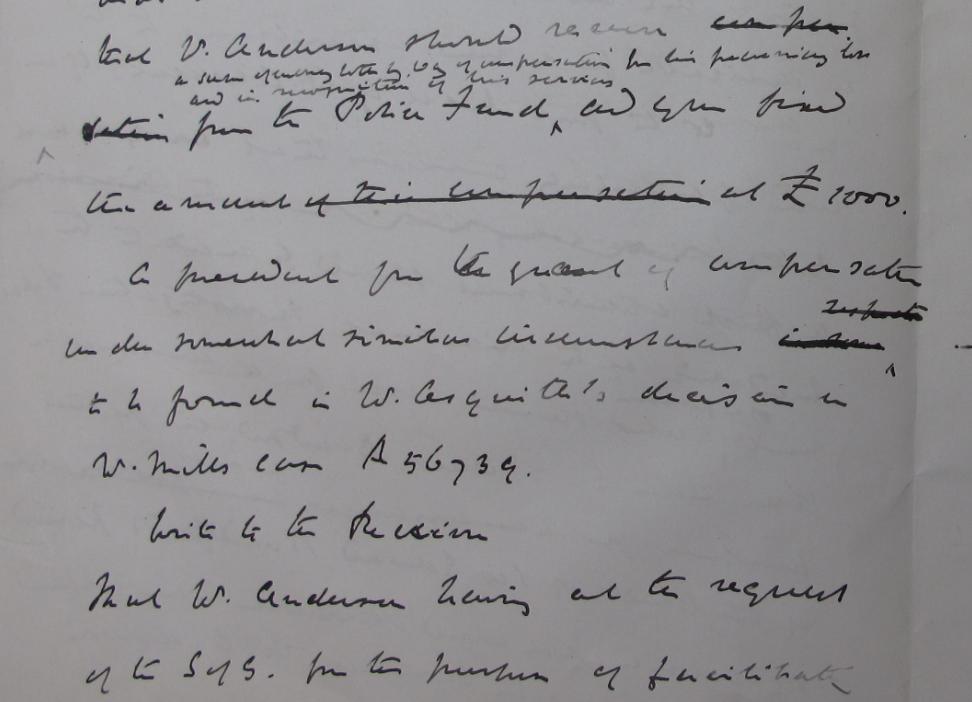 that W. Anderson should receive compen
a sum of money both by way of compensation for his pecuniary loss
and in recognition of his services
sation from the Police Fund, and upon fixed
the amount of this compensation at £1000.
A precedent for the grant of compensation
respects
under somewhat similar circumstances in some
to be found in W. Asquith's decision in
W. Mills case A56739.
Write to the Receiver
That W. Anderson having at the request
of the S of S. for the purpose of facilitating